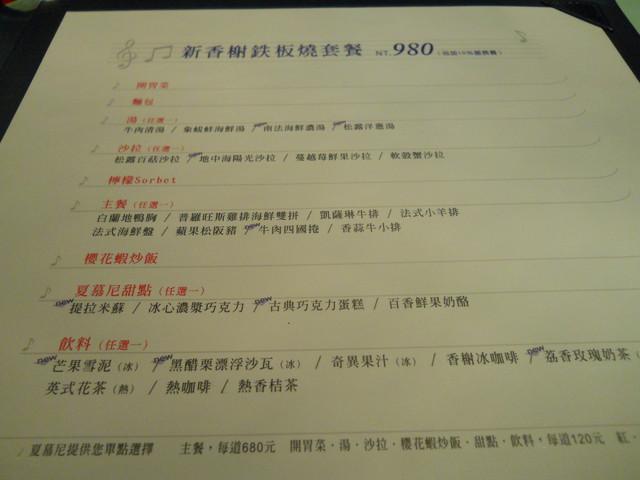 新香榭鉄板燒套餐 NT.980 (另加10%服務費)
開胃菜
麵包
湯 (任選一)
牛肉清湯 / 象蚌鮮海鮮湯 / new南法海鮮濃湯 / new松露洋蔥湯
沙拉 (任選一)
松露百菇沙拉 / new地中海陽光沙拉 / 蔓越莓鮮果沙拉 / 軟殼蟹沙拉
檸檬Sorbet
主餐 (任選一)
白蘭地鴨胸 / 普羅旺斯雞排海鮮雙拼 / 凱薩琳牛排 / 法式小羊排
法式海鮮盤 / 蘋果松阪豬 / new牛肉四國捲 / 香蒜牛小排
櫻花蝦炒飯
夏慕尼甜點 (任選一)
new提拉米蘇 / 冰心濃漿巧克力 / new古典巧克力蛋糕 / 百香鮮果奶酪
飲料 (任選一)
new芒果雪泥 (冰) / new黑醋栗漂浮沙瓦 (冰) / 奇異果汁 (冰) / 香榭冰咖啡 / new荔香玫瑰奶茶 (
英式花茶 (熱) / 熱咖啡 / 熱香桔茶
夏慕尼提供您單點選擇 主餐，每道680元 開胃菜．湯．沙拉．櫻花蝦炒飯．甜點．飲料，每道120元 紅．